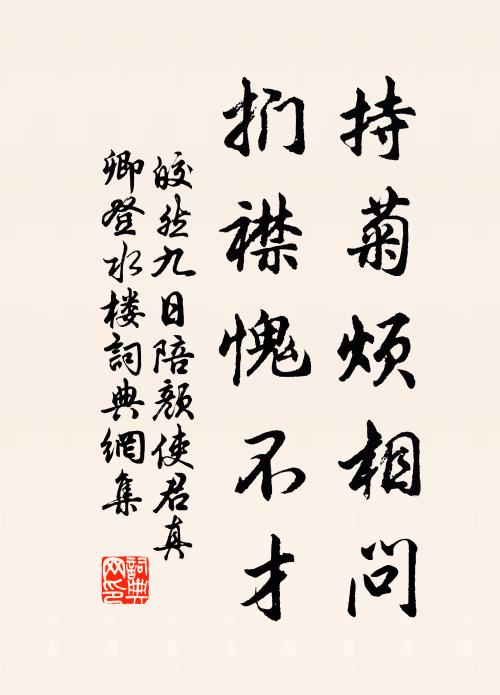 持菊烦相问
扪襟愧不才
皎然九日陪颜使君真
卿登水楼詞典網集
詞典网印